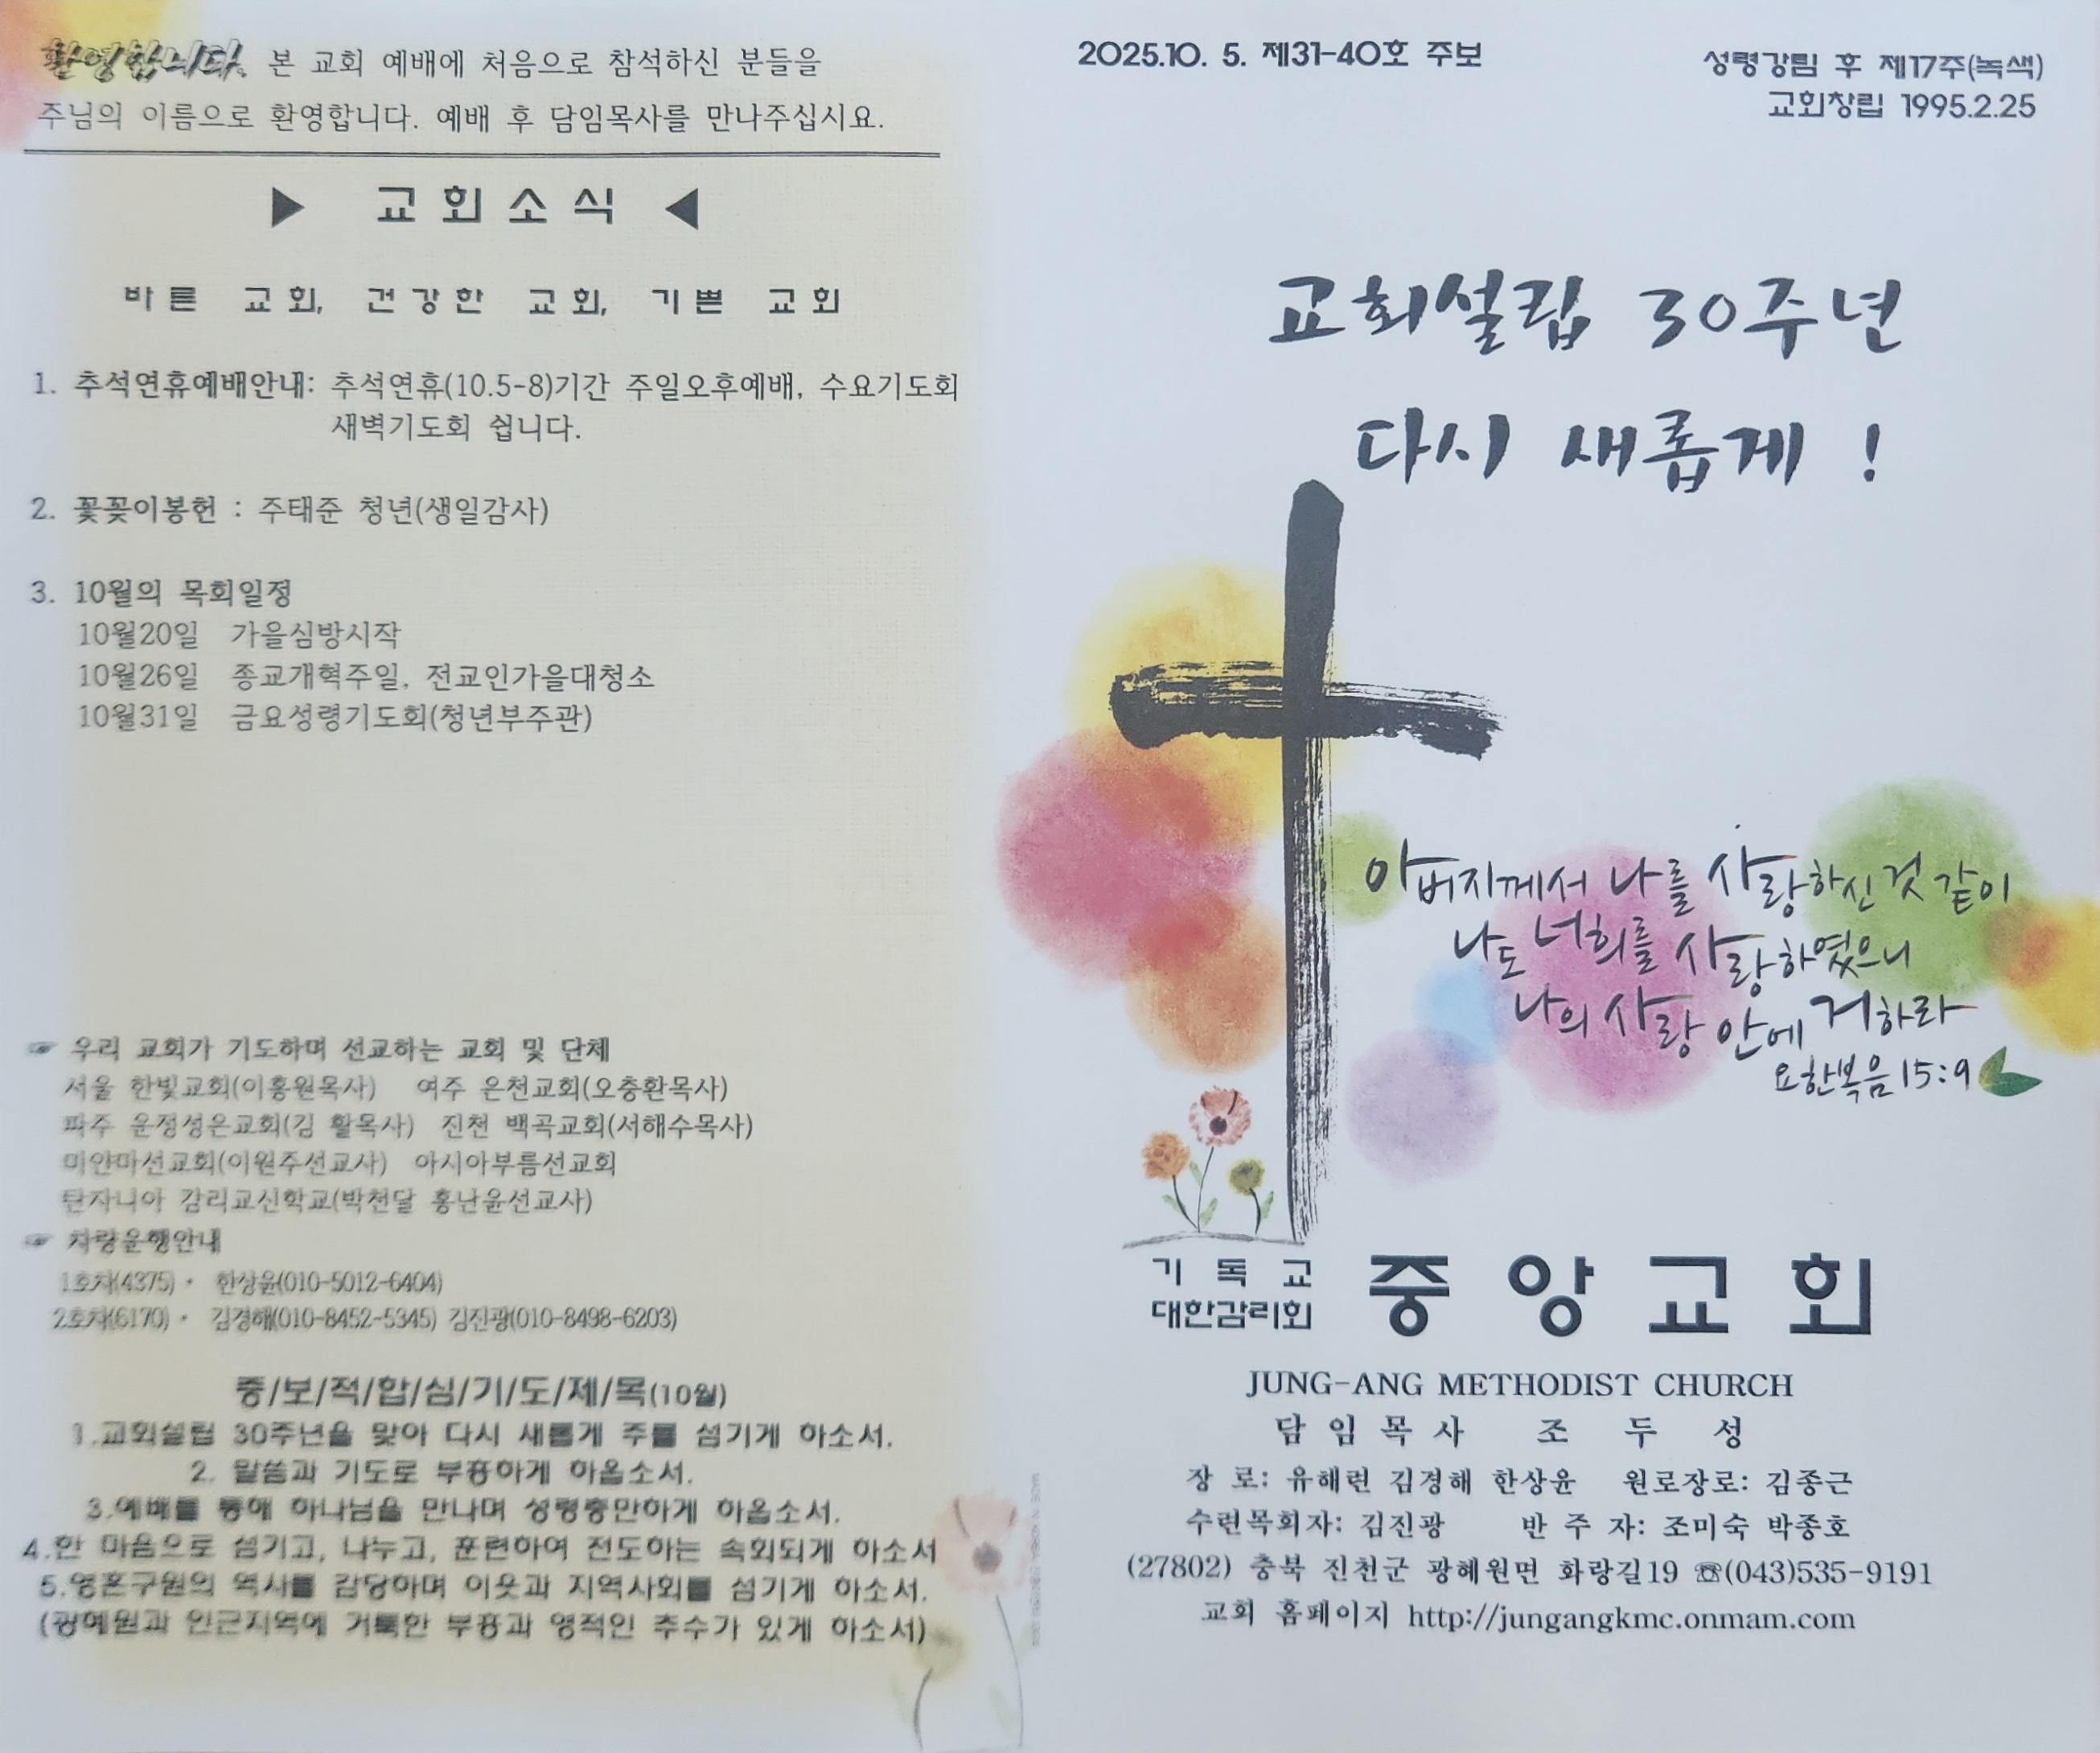 환영합니다. 본 교회 예배에 처음으로 참석하신 분들을
주님의 이름으로 환영합니다. 예배 후 담임목사를 만나주십시요.
▶ 교회소식 ◀
바른 교회, 건강한 교회, 기쁜 교회
1. 추석연휴예배안내: 추석연휴(10.5-8)기간 주일오후예배, 수요기도회
새벽기도회 쉽니다.
2. 꽃꽂이봉헌 : 주태준 청년(생일감사)
3. 10월의 목회일정
10월20일 가을심방시작
10월26일 종교개혁주일, 전교인가을대청소
10월31일 금요성령기도회(청년부주관)
☞ 우리 교회가 기도하며 선교하는 교회 및 단체
서울 한빛교회(이홍원목사) 여주 온천교회(오충환목사)
파주 운정성은교회(김 활목사) 진천 백곡교회(서해수목사)
미얀마선교회(이원주선교사) 아시아부름선교회
탄자니아 감리교신학교(박천달 홍난윤선교사)
☞ 차량운행안내
1호차(4375)· 한상윤(010-5012-6404)
2호차(6170)· 김경해(010-8452-5345) 김진광(010-8498-6203)
중/보/적/합/심/기/도/제/목(10월)
1.교회설립 30주년을 맞아 다시 새롭게 주를 섬기게 하소서.
2. 말씀과 기도로 부흥하게 하옵소서.
3.예배를 통해 하나님을 만나며 성령충만하게 하옵소서.
4.한 마음으로 섬기고, 나누고, 훈련하여 전도하는 속회되게 하소서
5.영혼구원의 역사를 감당하며 이웃과 지역사회를 섬기게 하소서.
(광혜원과 인근지역에 거룩한 부흥과 영적인 추수가 있게 하소서)
2025.10. 5. 제31-40호 주보
성령강림 후 제17주(녹색)
교회창립 1995.2.25
교회설립 30주년
다시 새롭게 !
아버지께서 나를 사랑하신것 같이
나도 너희를 사랑하였으니
나의 사랑 안에 거하라
요한복음 15:9
기독교
대한감리회 중앙교회
JUNG-ANG METHODIST CHURCH
담임목사 조 두 성
장 로: 유해련 김경해 한상윤 원로장로: 김종근
수련목회자: 김진광 반 주 자: 조미숙 박종호
(27802) 충북 진천군 광혜원면 화랑길19 ☏(043)535-9191
교회 홈페이지 http://jungangkmc.onmam.com